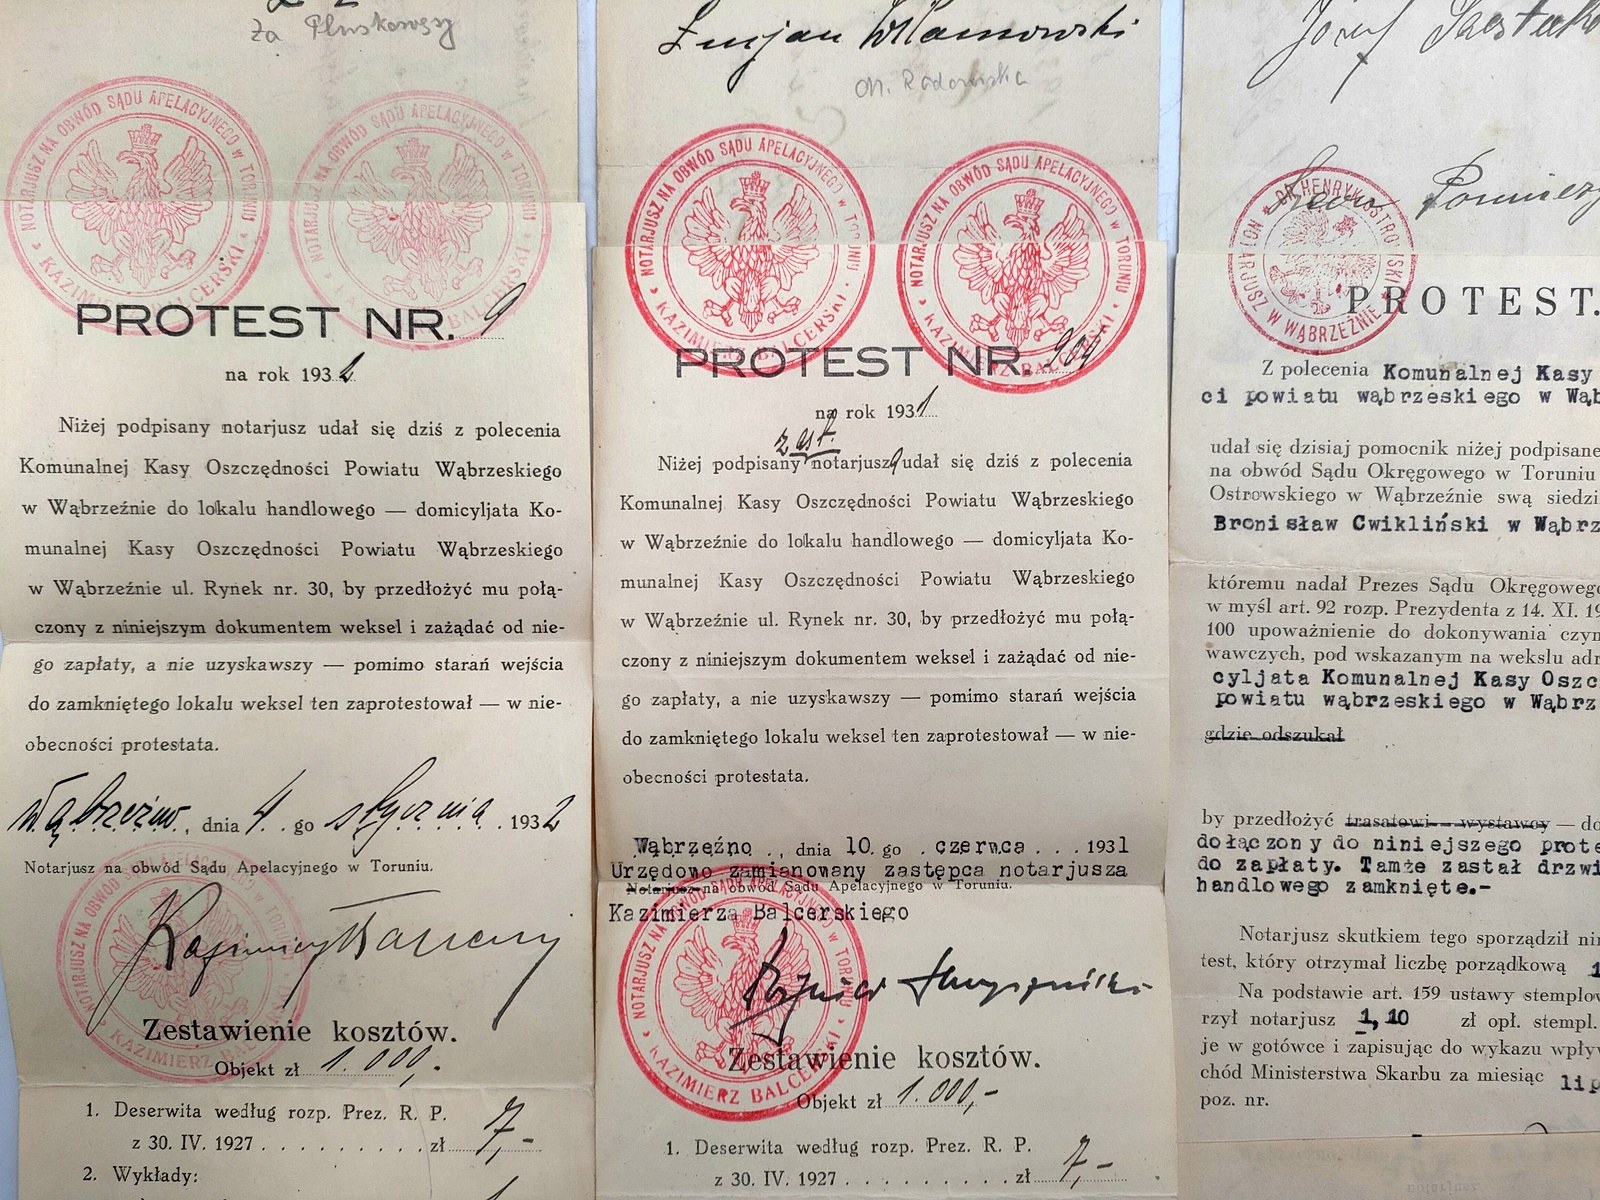 za Pluskowęsy
NOTARJUSZ NA OBWÓD SĄDU APELACYJNEGO w TORUNIU
KAZIMIERZ BALCERSKI
NOTARJUSZ NA OBWÓD SĄDU APELACYJNEGO w TORUNIU
KAZIMIERZ BALCERSKI
PROTEST NR. 9
na rok 1932
Niżej podpisany notarjusz udał się dziś z polecenia
Komunalnej Kasy Oszczędności Powiatu Wąbrzeskiego
w Wąbrzeźnie do lokalu handlowego — domicyljata Ko-
munalnej Kasy Oszczędności Powiatu Wąbrzeskiego
w Wąbrzeźnie ul. Rynek nr. 30, by przedłożyć mu połą-
czony z niniejszym dokumentem weksel i zażądać od nie-
go zapłaty, a nie uzyskawszy — pomimo starań wejścia
do zamkniętego lokalu weksel ten zaprotestował — w nie-
obecności protestata.
Wąbrzeźno, dnia 4. go stycznia 1932
Notarjusz na obwód Sądu Apelacyjnego w Toruniu.
NOTARJUSZ NA OBWÓD SĄDU APELACYJNEGO w TORUNIU
KAZIMIERZ BALCERSKI
Kazimierz Balcerski
Zestawienie kosztów.
Objekt zł 1.000,-
1. Deserwita według rozp. Prez. R. P.
z 30. IV. 1927 . . . . . . . . . . zł 7,-
2. Wykłady:
Lucjan
M. Radowska
NOTARJUSZ NA OBWÓD SĄDU APELACYJNEGO w TORUNIU
KAZIMIERZ BALCERSKI
NOTARJUSZ NA OBWÓD SĄDU APELACYJNEGO w TORUNIU
KAZIMIERZ BALCERSKI
PROTEST NR. 904
na rok 1931
zast.
Niżej podpisany notarjusza udał się dziś z polecenia
Komunalnej Kasy Oszczędności Powiatu Wąbrzeskiego
w Wąbrzeźnie do lokalu handlowego — domicyljata Ko-
munalnej Kasy Oszczędności Powiatu Wąbrzeskiego
w Wąbrzeźnie ul. Rynek nr. 30, by przedłożyć mu połą-
czony z niniejszym dokumentem weksel i zażądać od nie-
go zapłaty, a nie uzyskawszy — pomimo starań wejścia
do zamkniętego lokalu weksel ten zaprotestował — w nie-
obecności protestata.
Wąbrzeźno, dnia 10. go czerwca 1931
Urzędowo zamianowany zastępca notarjusza
Notarjusz na obwód Sądu Apelacyjnego w Toruniu.
Kazimierza Balcerskiego
NOTARJUSZ NA OBWÓD SĄDU APELACYJNEGO w TORUNIU
KAZIMIERZ BALCERSKI
Zestawienie kosztów.
Objekt zł 1.000,-
1. Deserwita według rozp. Prez. R. P.
z 30. IV. 1927 . . . . . . . . . . zł 7,-
Józef
Leon
DR HENRYK OSTROWSKI
NOTARJUSZ W WĄBRZEŹNIE
PROTEST.
Z polecenia Komunalnej Kasy
ci powiatu wąbrzeskiego w Wąb
udał się dzisiaj pomocnik niżej podpisane
na obwód Sądu Okręgowego w Toruniu
Ostrowskiego w Wąbrzeźnie swą siedzi
Bronisław Cwikliński w Wąbrz
któremu nadał Prezes Sądu Okręgowego
w myśl art. 92 rozp. Prezydenta z 14. XI. 19
100 upoważnienie do dokonywania czyn
wawczych, pod wskazanym na wekslu adr
cyljata Komunalnej Kasy Oszc
powiatu wąbrzeskiego w Wąbrz
gdzie odszukał
by przedłożyć trasatowi — wystawcy — do
dołączony do niniejszego prote
do zapłaty. Tamże zastał drzwi
handlowego zamknięte.-
Notarjusz skutkiem tego sporządził nin
test, który otrzymał liczbę porządkową 1
Na podstawie art. 159 ustawy stemplow
rzył notarjusz 1,10 zł opł. stempl.
je w gotówce i zapisując do wykazu wpływ
chód Ministerstwa Skarbu za miesiąc lip
poz. nr.